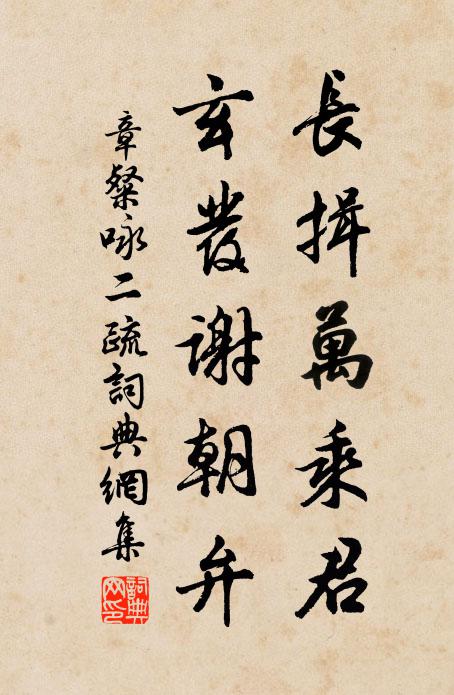 長揖萬乘君
玄髮謝朝弁
章粲咏二疏詞典網集
詞典網印